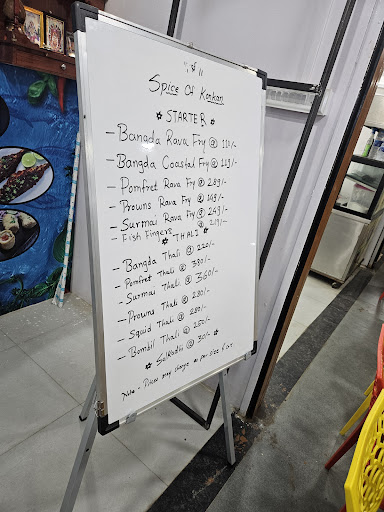 "ॐ"
Spice Of Konkan
* STARTER *
- Bangda Rava Fry @ 119/-
- Bangda Coastal Fry @ 129/-
- Pomfret Rava Fry @ 289/-
- Prowns Rava Fry @ 249/-
- Surmai Rava Fry @ 249/-
- Fish Fingers @ 219/-
* THALI *
- Bangda Thali @ 220/-
- Pomfret Thali @ 330/-
- Surmai Thali @ 360/-
- Prowns Thali @ 280/-
- Squid Thali @ 280/-
- Bombil Thali @ 250/-
* Solkadhi @ 30/- *
Note - Prices may change as per size